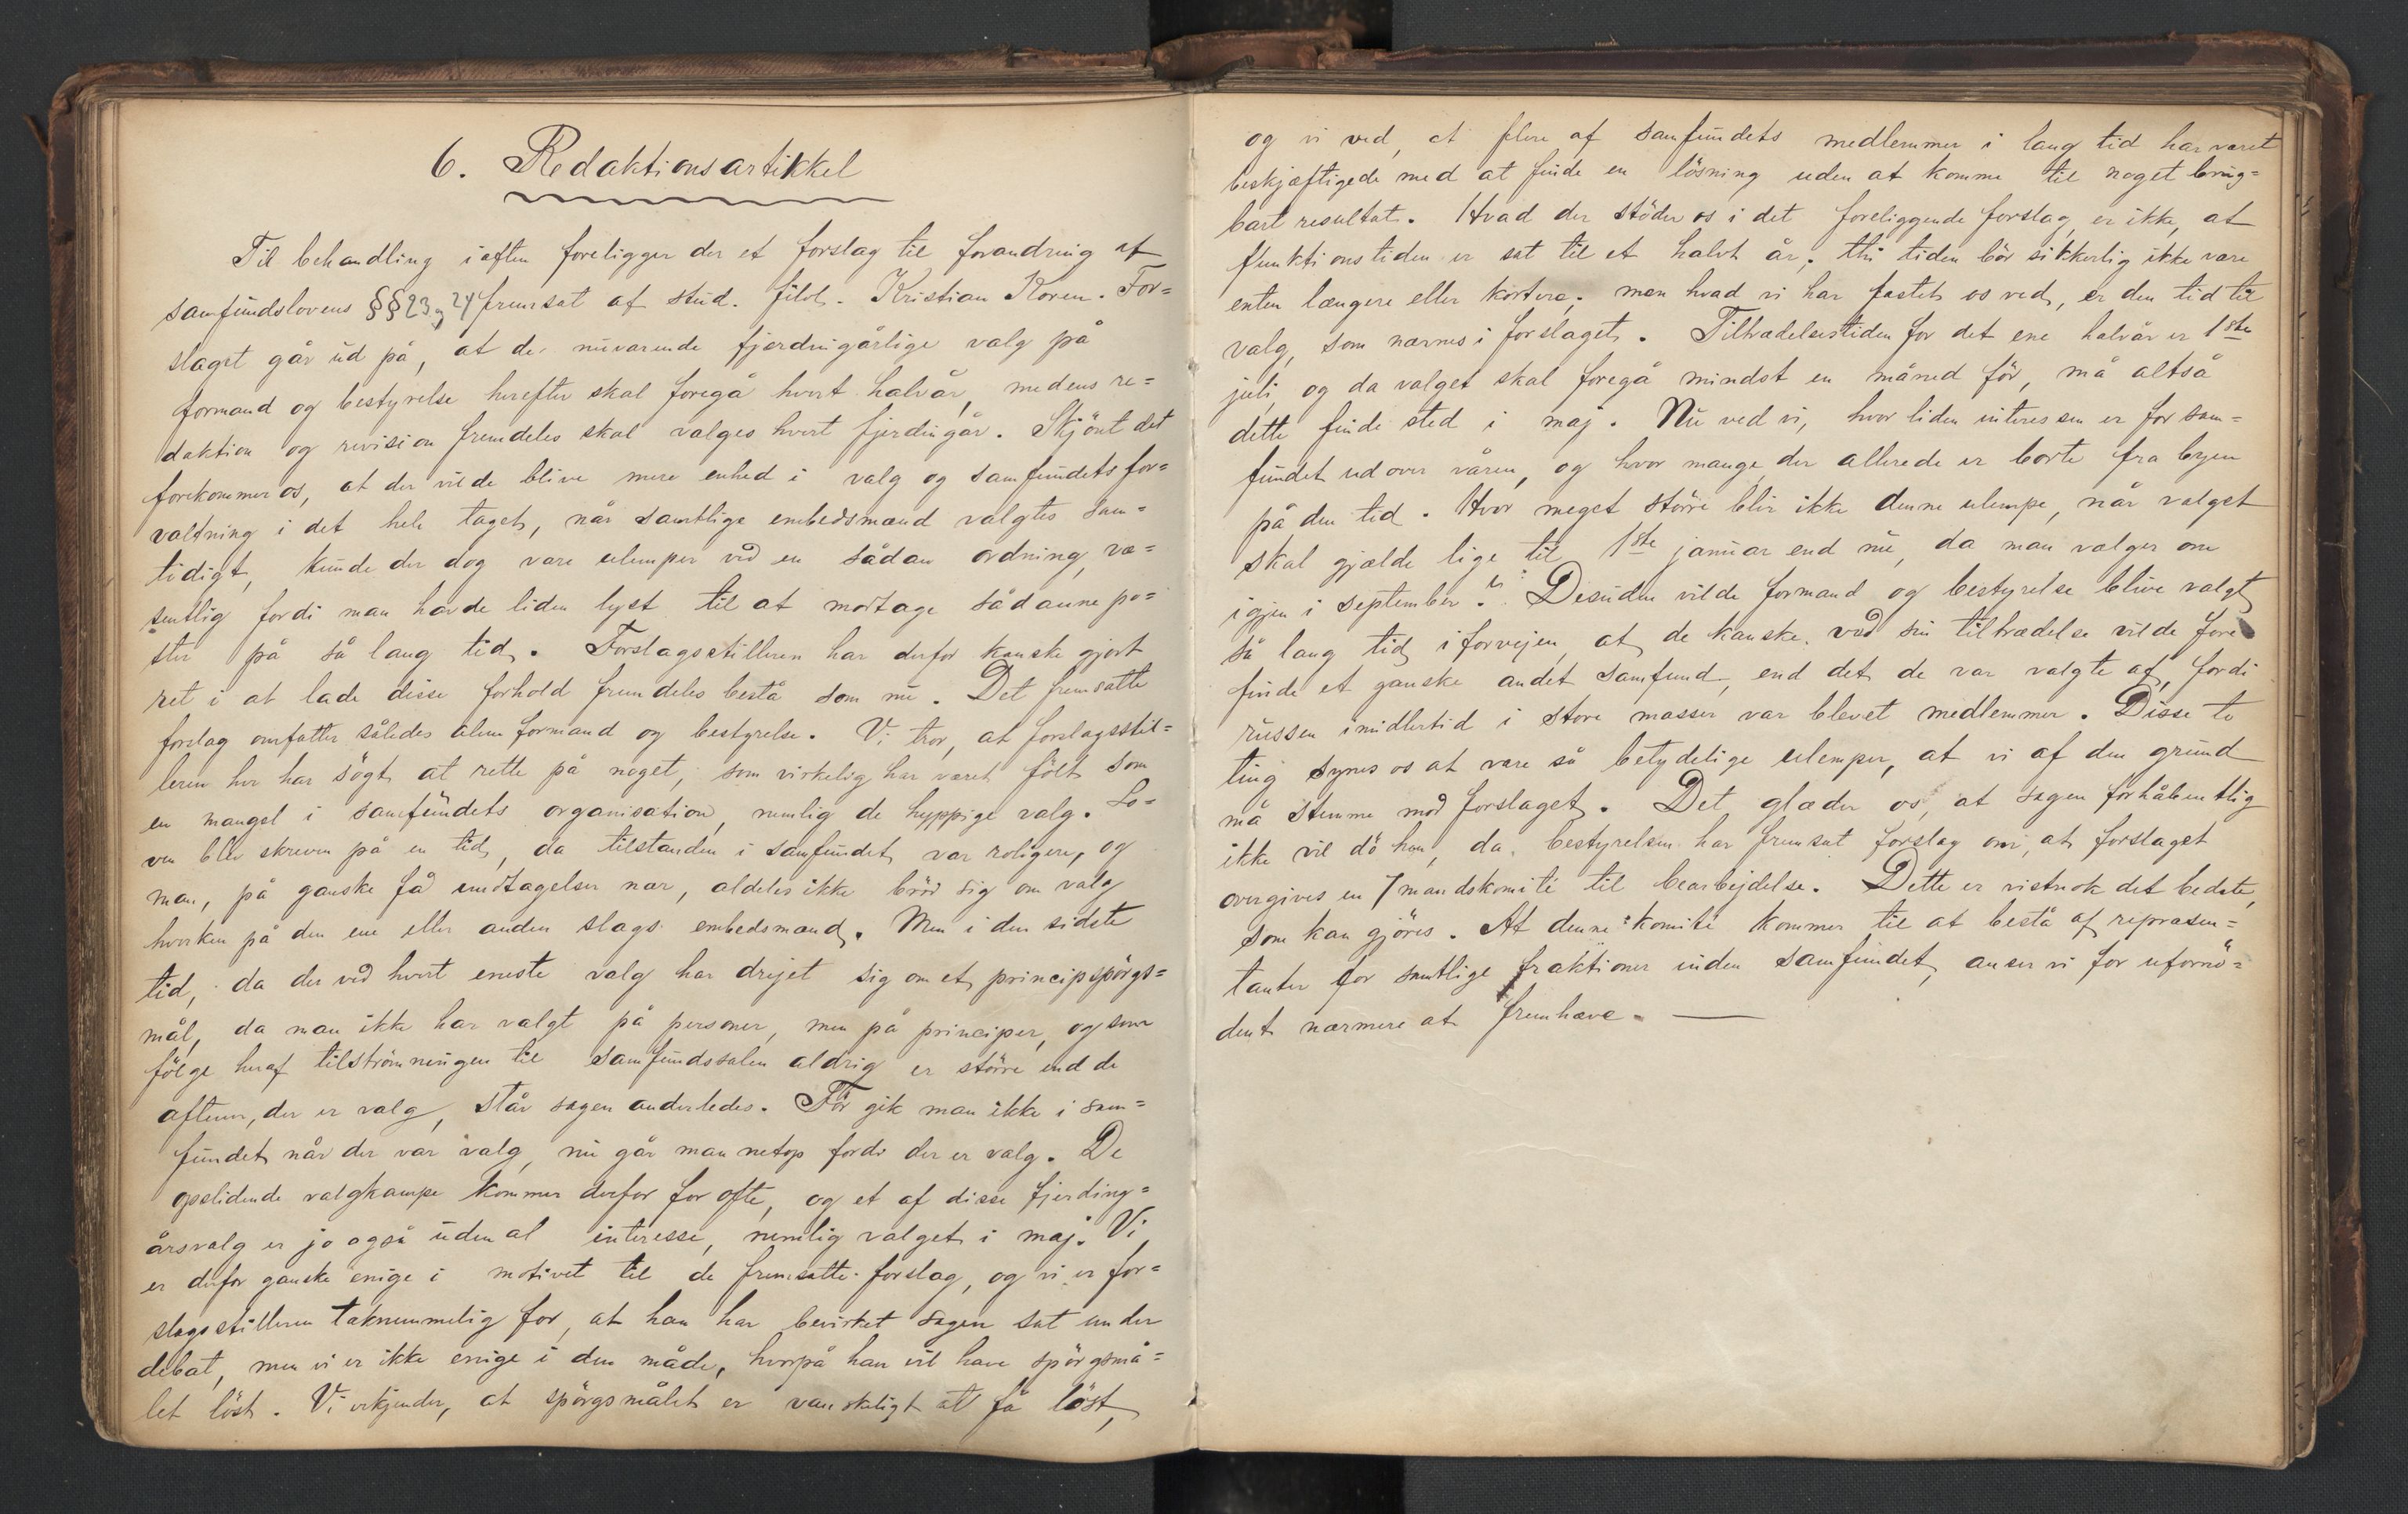 6. Redaktionsartikkel
Til behandling iaften foreligger der et forslag til forandring af
samfundslovens §§23 og 24 fremsat af stud. filol. Kristian Koren. For=
slaget går ud på, at de nuværende fjerdingårlige valg på
formand og bestyrelse herefter skal foregå hvert halvår, medens re=
daktion og revision fremdeles skal vælges hvert fjerdingår. Skjönt det
forekommer os, at der vilde blive mere enhed i valg og samfundets for=
valtning i det hele taget, når samtlige embedsmænd valgtes sam=
tidigt, kunde der dog være ulemper ved en sådan ordning, væ=
sentlig fordi man havde liden lyst til at modtage sådanne po=
ster på så lang tid. Forslagsstilleren har derfor kanske gjort
ret i at lade disse forhold fremdeles bestå som nu. Det fremsatte
forslag omfatter således alene formand og bestyrelse. Vi tror, at forslagsstil=
leren her har sögt at rette på noget, som virkelig har været fölt som
en mangel i samfundets organisation, nemlig de hyppige valg. Lo=
ven blev skreven på en tid, da tilstanden i samfundet var roligere, og
man, på ganske få undtagelser nær, aldeles ikke bröd sig om valg
hverken på den ene eller anden slags embedsmænd. Men i den sidste
tid, da der ved hvert eneste valg har drejet sig om et principspörgs=
mål, da man ikke har valgt på personer, men på principer, og som
fölge heraf tilströmningen til samfundssalen aldrig er större end de
aftener, der er valg, står sagen anderledes. För gik man ikke i sam=
fundet når der var valg, nu går man netop fordi der er valg. De
opslidende valgkampe kommer derfor for ofte, og et af disse fjerding=
årsvalg er jo også uden al interesse, nemlig valget i maj. Vi
er derfor ganske enige i motivet til de fremsatte forslag, og vi er for=
slagsstilleren taknemmelig for, at han har bevirket sagen sat under
debat, men vi er ikke enige i den måde, hvorpå han vil have spörgsmå=
let löst. Vi erkjender, at spörgsmålet er vanskeligt at få löst,
og vi ved, at flere af samfundets medlemmer i lang tid har været
beskjæftigede med at finde en lösning uden at komme til noget brug=
bart resultat. Hvad der stöder os i det foreliggende forslag, er ikke, at
funktionstiden er sat til et halvt år; thi tiden bör sikkerlig ikke være
enten længere eller kortere; men hvad vi har fæstet os ved, er den tid til
valg, som nævnes i forslaget. Tiltrædelsestiden for det ene halvår er 1ste
juli, og da valget skal foregå mindst en måned för, må altså
dette finde sted i maj. Nu ved vi, hvor liden interessen er for sam=
fundet udover våren, og hvor mange der allerede er borte fra byen
på den tid. Hvor meget större blir ikke denne ulempe, når valget
skal gjælde lige til 1ste januar end nu, da man vælger om
igjen i september? Desuden vilde formand og bestyrelse blive valgt
så lang tid iforvejen, at de kanske ved sin tiltrædelse vilde fore
finde et ganske andet samfund, end det de var valgte af, fordi
russen imidlertid i store masser var blevet medlemmer. Disse to
ting synes os at være så betydelige ulemper, at vi af den grund
må stemme mod forslaget. Det glæder os, at sagen forhåbentlig
ikke vil dö hen, da bestyrelsen har fremsat forslag om, at forslaget
overgives en 7 mandskomité til bearbejdelse. Dette er vistnok det bedste,
som kan gjöres. At denne komité kommer til at bestå af repræsen=
tanter for samtlige fraktioner inden samfundet, anser vi for ufornö=
dent nærmere at fremhæve. —